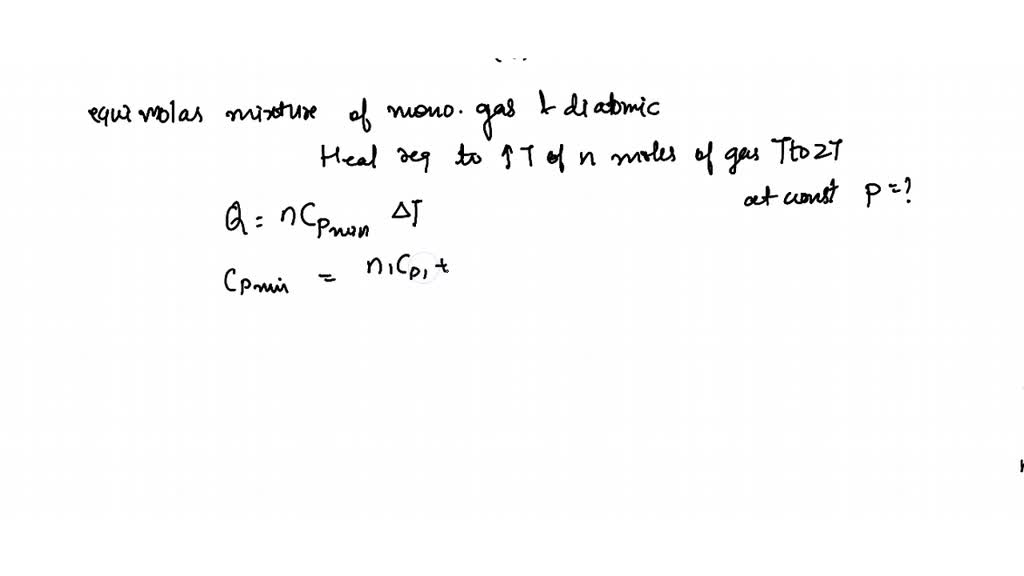 equimolar mixture of mono. gas & diatomic
Heat req to ↑ T of n moles of gas T to 2T
at const P = ?
Q = nCpmix ΔT
Cpmix = n₁Cp₁ +